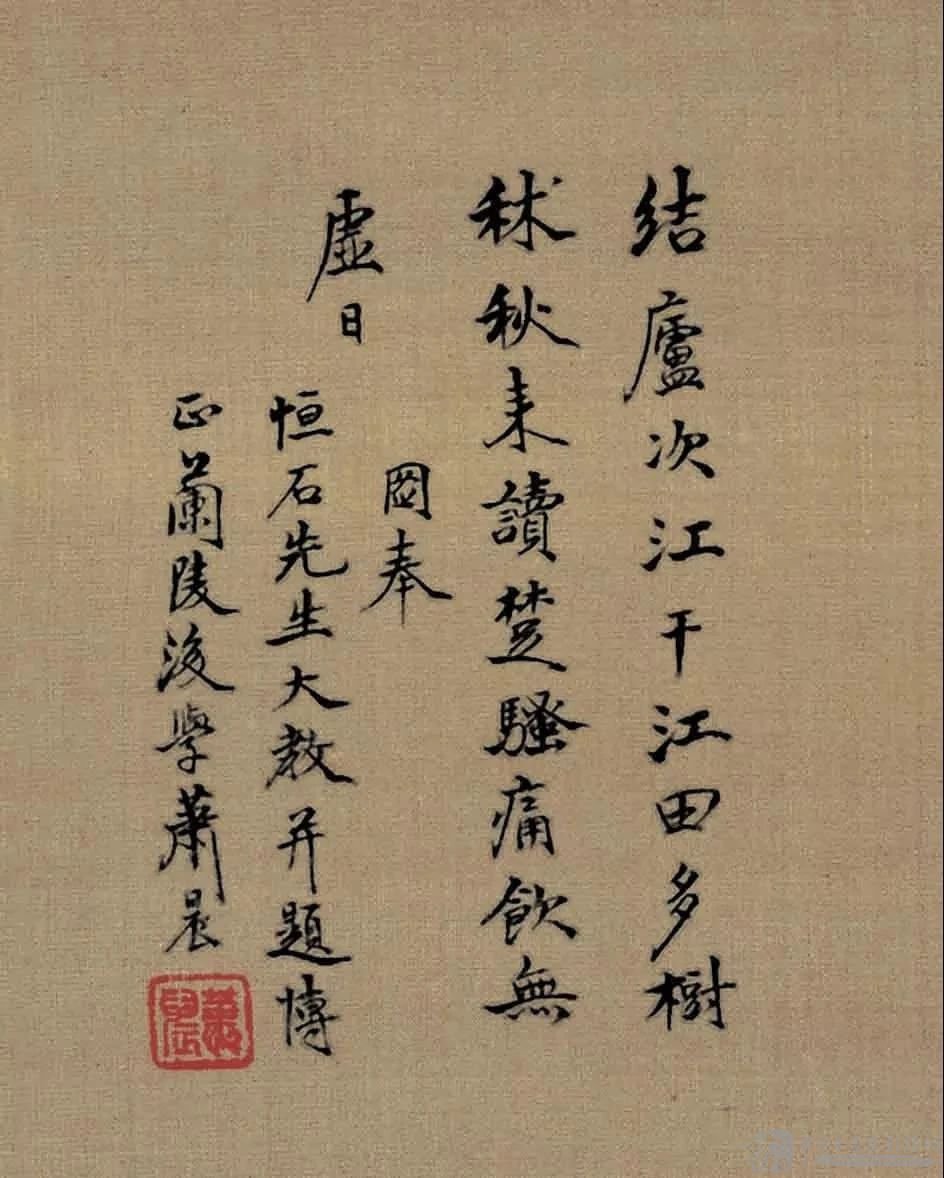 結廬次江干江田多樹
秫秋来讀楚騷痛飲無
虛日
圖奉
恒石先生大教并題博
正蘭陵後學蕭晨